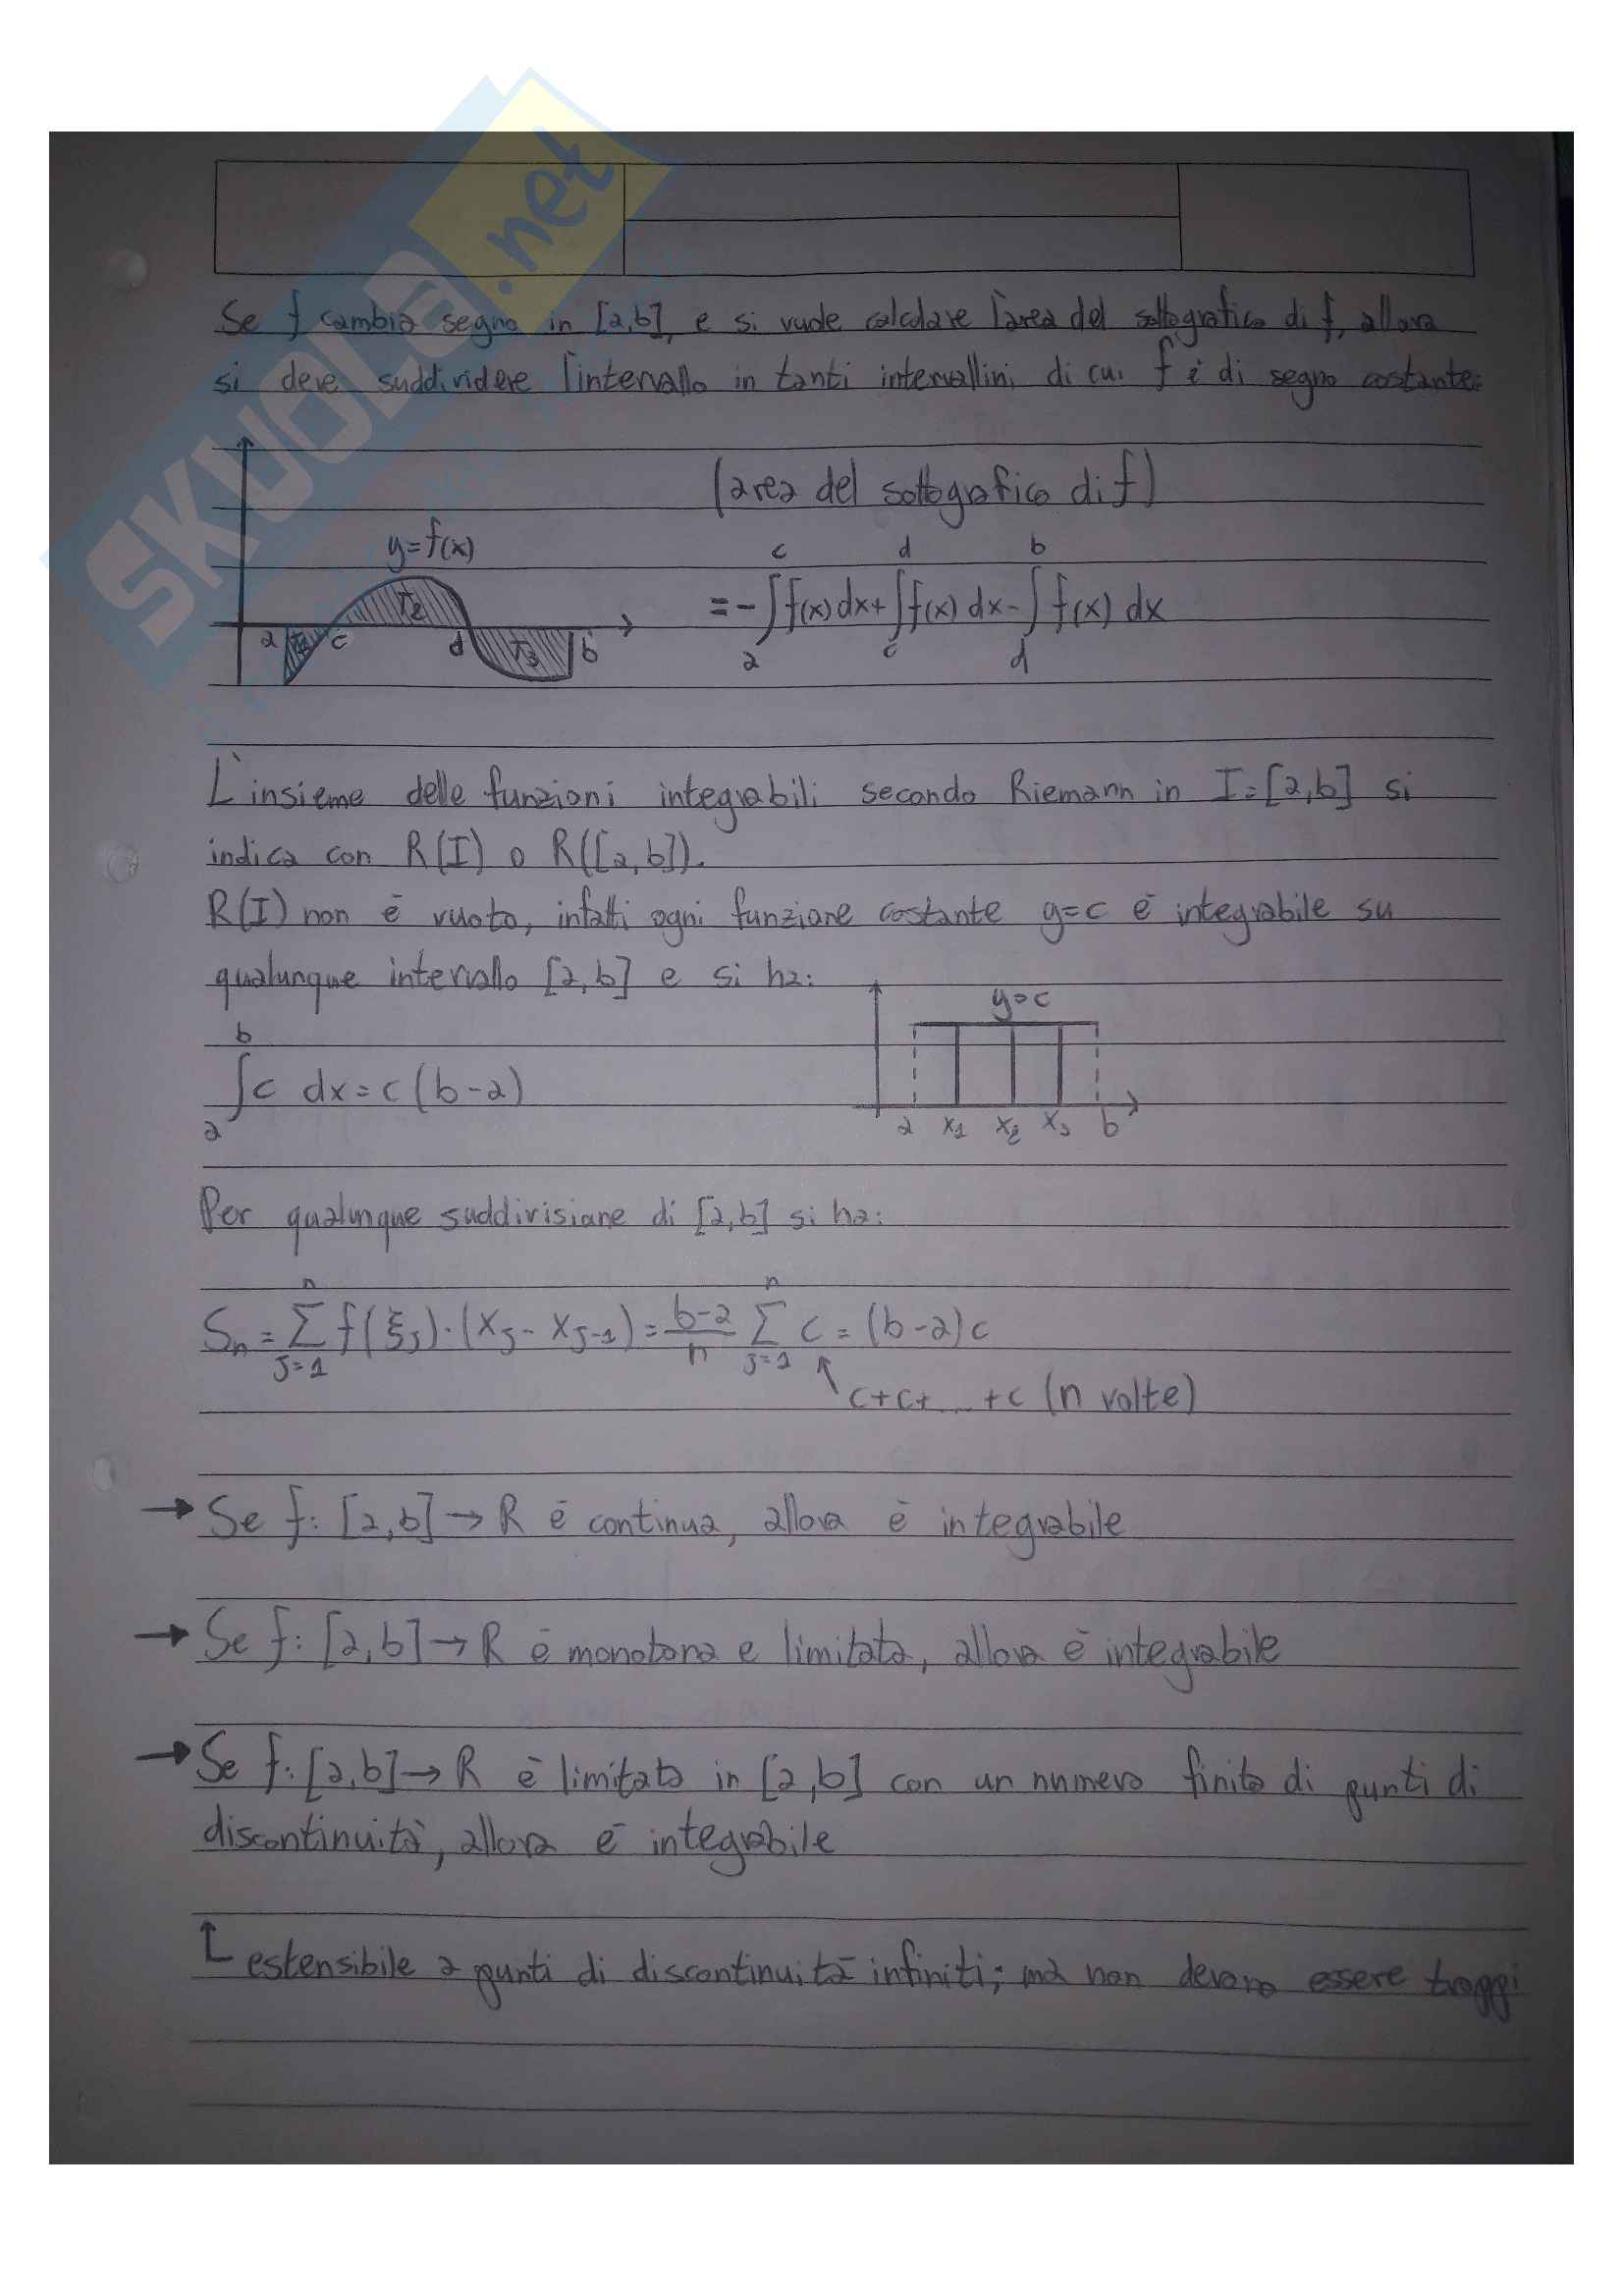 SKUOLA.net
Se f cambia segno in [a,b], e si vuole calcolare l'area del sottografico di f, allora
si deve suddividere l'intervallo in tanti intervallini di cui f è di segno costante:
(area del sottografico di f)
y=f(x)
= -∫_a^c f(x) dx + ∫_c^d f(x) dx - ∫_d^b f(x) dx
a T1 c T2 d T3 b
L'insieme delle funzioni integrabili secondo Riemann in I=[a,b] si
indica con R(I) o R([a,b]).
R(I) non è vuoto, infatti ogni funzione costante y=c è integrabile su
qualunque intervallo [a,b] e si ha:
y=c
∫_a^b c dx = c (b-a)
a x1 x2 x3 b
Per qualunque suddivisione di [a,b] si ha:
Sn = Σ_{j=1}^n f(ξj)·(xj - xj-1) = (b-a)/n Σ_{j=1}^n c = (b-a)c
c+c+...+c (n volte)
→ Se f: [a,b] → R è continua, allora è integrabile
→ Se f: [a,b] → R è monotona e limitata, allora è integrabile
→ Se f: [a,b] → R è limitata in [a,b] con un numero finito di punti di
discontinuità, allora è integrabile
estensibile a punti di discontinuità infiniti; ma non devono essere troppi